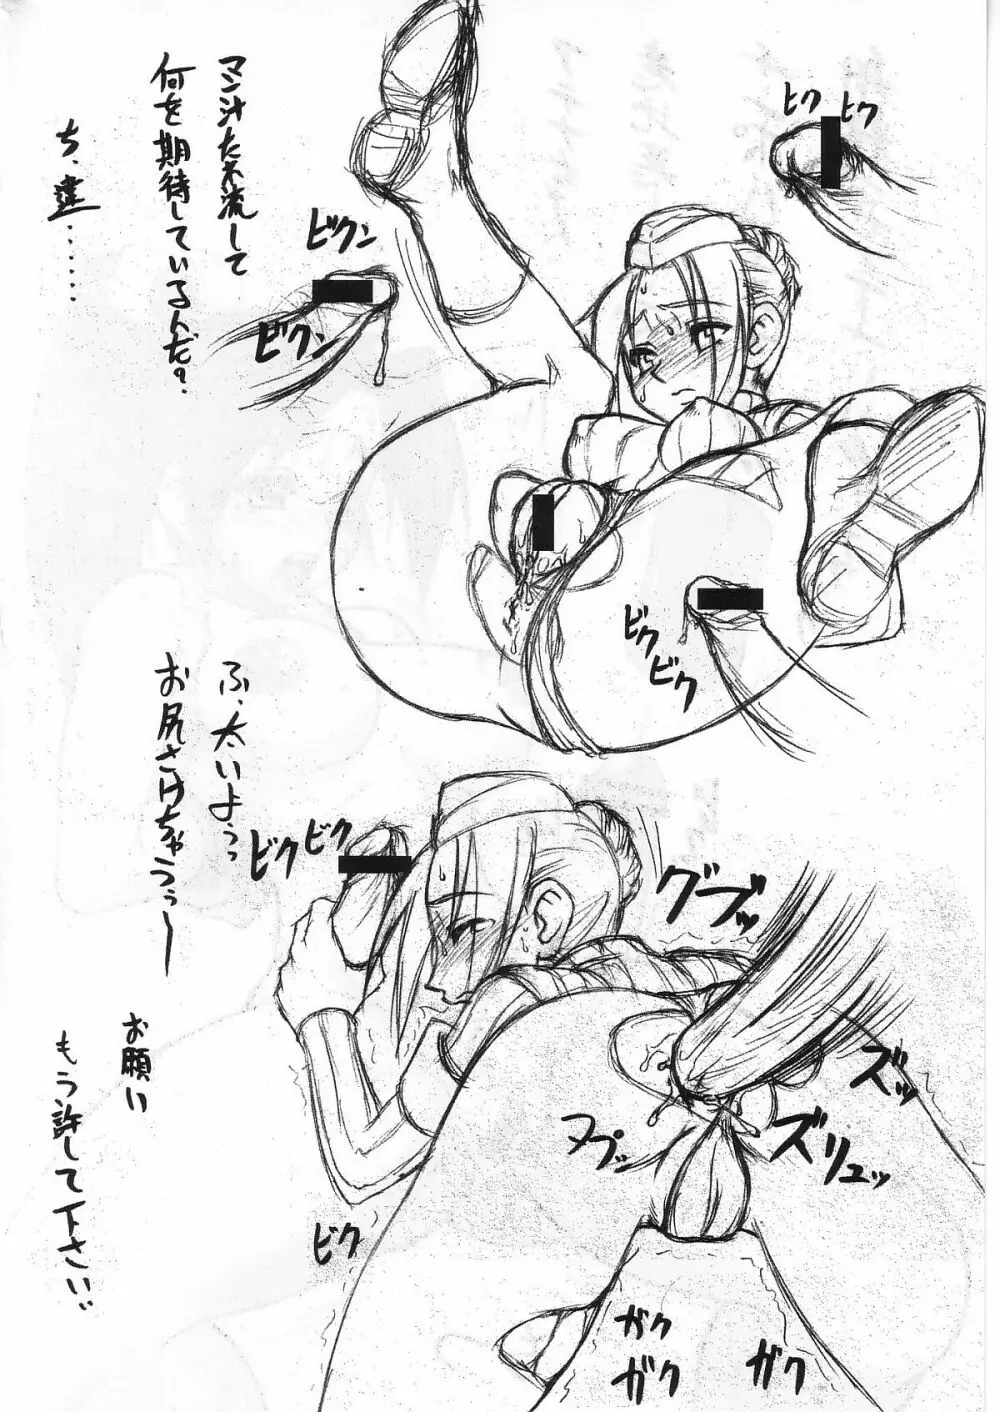 ヒク
ヒク
マン汁たれ流して
何を期待しているんだ?
ち、違‥‥‥
ビクン
ビクン
ビク
ビク
ふ、太いようっ
お尻さけちゃうぅー
お願い
もう許して下さい‥
ビク
ビク
グブッ
ズッ
ズリュッ
ヌプッ
ビク
ガク
ガク
ガク